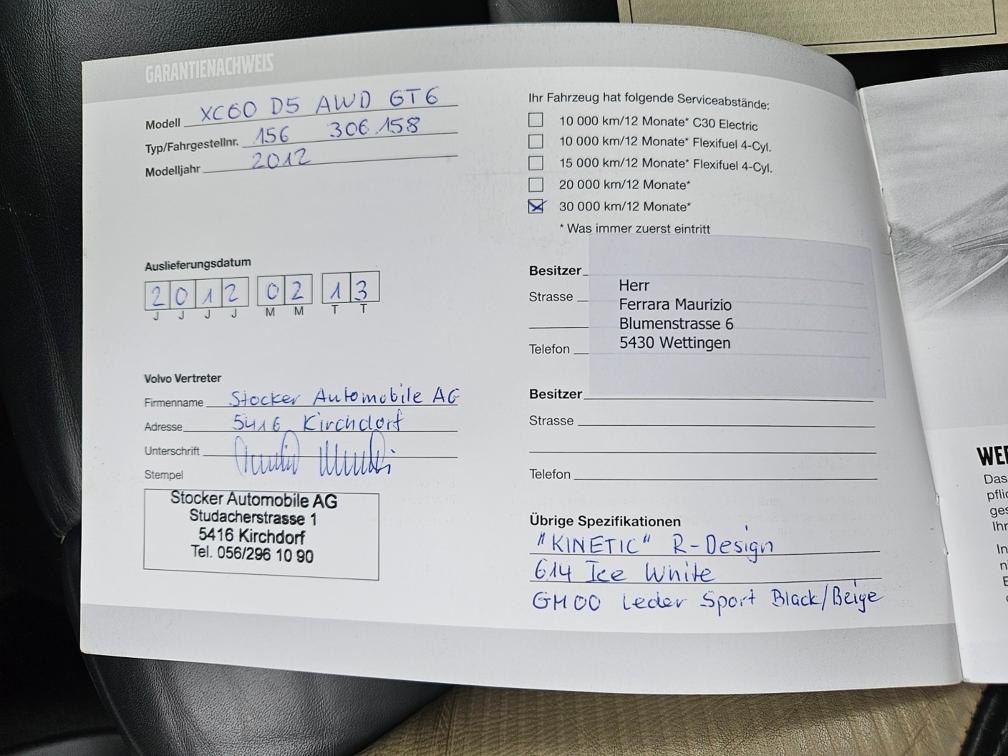 GARANTIENACHWEIS
Modell XC60 D5 AWD GT6
Typ/Fahrgestellnr. 156 306.158
Modelljahr 2012
Auslieferungsdatum
2012 02 13
J J J J M M T T
Volvo Vertreter
Firmenname Stocker Automobile AG
Adresse 5416 Kirchdorf
Unterschrift
Stempel
Stocker Automobile AG
Studacherstrasse 1
5416 Kirchdorf
Tel. 056/296 10 90
Ihr Fahrzeug hat folgende Serviceabstände:
10 000 km/12 Monate* C30 Electric
10 000 km/12 Monate* Flexifuel 4-Cyl.
15 000 km/12 Monate* Flexifuel 4-Cyl.
20 000 km/12 Monate*
30 000 km/12 Monate*
* Was immer zuerst eintritt
Besitzer
Herr
Strasse
Ferrara Maurizio
Blumenstrasse 6
5430 Wettingen
Telefon
Besitzer
Strasse
Telefon
Übrige Spezifikationen
"KINETIC" R-Design
614 Ice White
GM00 Leder Sport Black/Beige
Das
Ihr
In